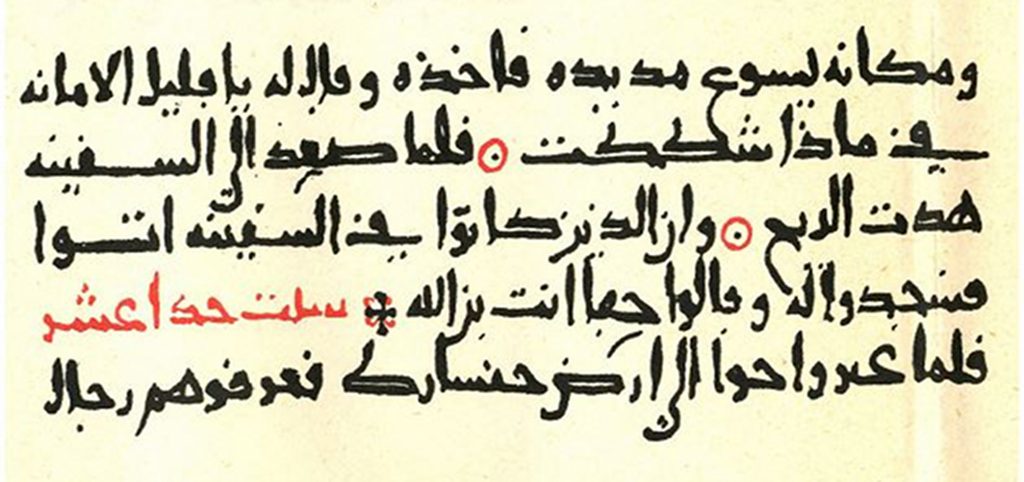 ومكانه يسوع مد يده فاخذه وقال له يا قليل الامانه
في ماذا شككت ۞ فلما صعد الى السفينه
هدت الريح ۞ وان الذين كانوا في السفينه اتوا
فسجدوا له وقالوا حقا انت بن الله ※ سبت حدا عشر
فلما عبروا جوا الى ارض جنسارت فعرفوهم رجال